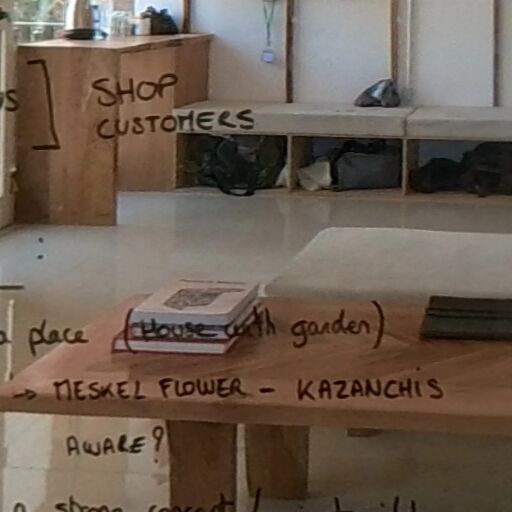 ] SHOP
CUSTOMERS
a place (House with garden)
→ MESKEL FLOWER - KAZANCHIS
AWARE?
a strong concept /